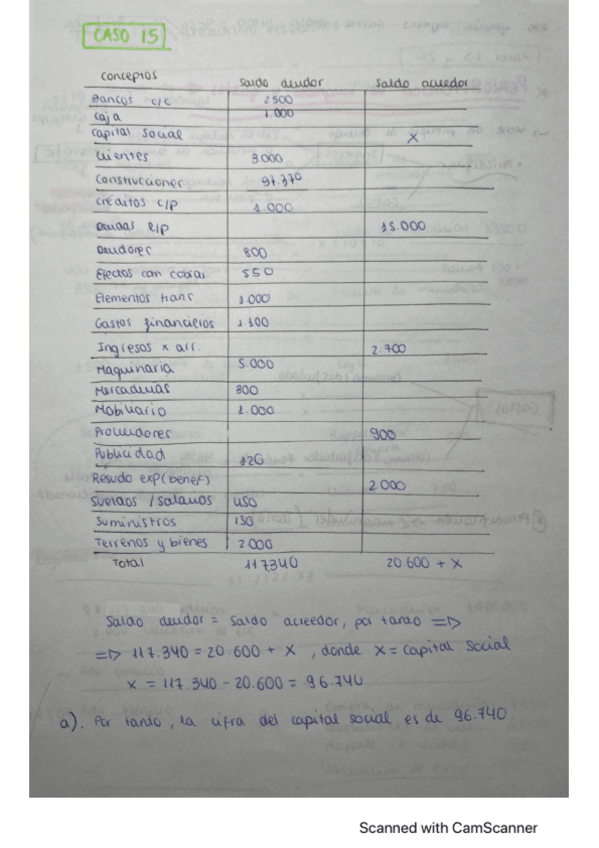 CASO 15
conceptos saldo deudor saldo acreedor
Bancos c/c 2500
Caja 1.000
Capital social X
Clientes 3.000
Construcciones 97.370
Créditos c/p 1.000
Deudas l/p 15.000
Deudores 800
Efectos com cobrar 550
Elementos trans 1.000
Gastos financieros 1.100
Ingresos x arr. 2.700
Maquinaria 5.000
Mercaderías 300
Mobiliario 1.000
Proveedores 900
Publicidad 120
Resudo exp (benef) 2.000
Sueldos / salarios 450
Suministros 150
Terrenos y bienes 2.000
Total 117.340 20.600 + X
Saldo deudor = Saldo acreedor, por tanto =>
=> 117.340 = 20.600 + X , donde X = Capital Social
X = 117.340 - 20.600 = 96.740
a). Por tanto, la cifra del capital social es de 96.740.
Scanned with CamScanner